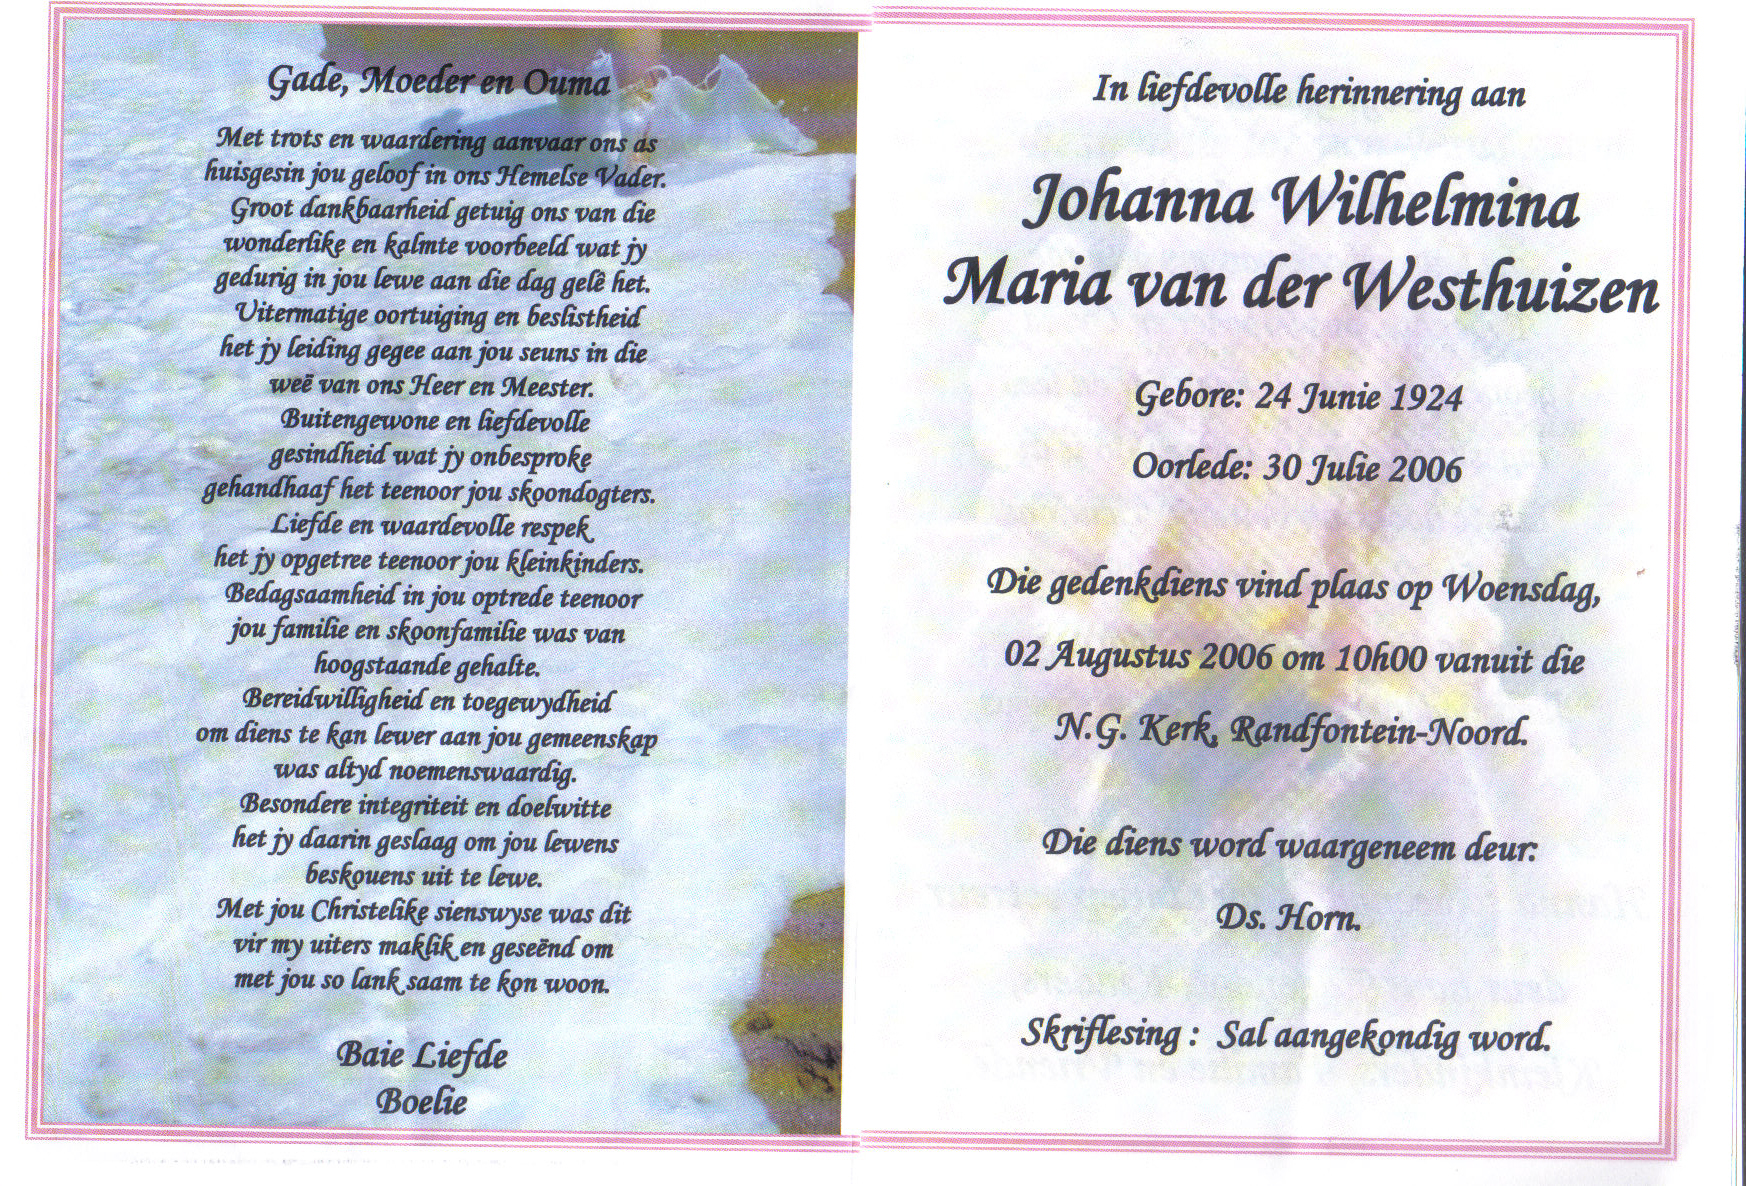 Gade, Moeder en Ouma
Met trots en waardering aanvaar ons as
huisgesin jou geloof in ons Hemelse Vader.
Groot dankbaarheid getuig ons van die
wonderlike en kalmte voorbeeld wat jy
gedurig in jou lewe aan die dag gelê het.
Uitermatige oortuiging en beslistheid
het jy leiding gegee aan jou seuns in die
weë van ons Heer en Meester.
Buitengewone en liefdevolle
gesindheid wat jy onbesproke
gehandhaaf het teenoor jou skoondogters.
Liefde en waardevolle respek
het jy opgetree teenoor jou kleinkinders.
Bedagsaamheid in jou optrede teenoor
jou familie en skoonfamilie was van
hoogstaande gehalte.
Bereidwilligheid en toegewydheid
om diens te kan lewer aan jou gemeenskap
was altyd noemenswaardig.
Besondere integriteit en doelwitte
het jy daarin geslaag om jou lewens
beskouens uit te lewe.
Met jou Christelike sienswyse was dit
vir my uiters maklik en geseënd om
met jou so lank saam te kon woon.
Baie Liefde
Boelie
In liefdevolle herinnering aan
Johanna Wilhelmina
Maria van der Westhuizen
Gebore: 24 Junie 1924
Oorlede: 30 Julie 2006
Die gedenkdiens vind plaas op Woensdag,
02 Augustus 2006 om 10h00 vanuit die
N.G. Kerk, Randfontein-Noord.
Die diens word waargeneem deur:
Ds. Horn.
Skriflesing : Sal aangekondig word.